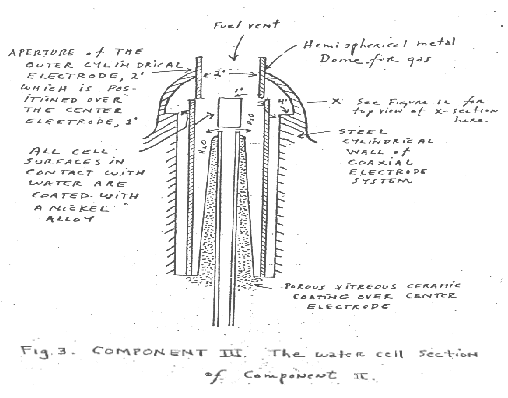 Fuel vent
APERTURE of THE
OUTER CYLINDRICAL
ELECTRODE, 2'
WHICH IS POS-
ITIONED OVER
THE CENTER
ELECTRODE, 1'
Hemispherical metal
Dome for gas
2'
1'
4'
X See Figure 12 for
top view of X-section
here.
STEEL
CYLINDRICAL
WALL of
COAXIAL
ELECTRODE
SYSTEM
H2O
H2O
ALL CELL
SURFACES IN
CONTACT WITH
WATER ARE
COATED WITH
A NICKEL
ALLOY
POROUS VITREOUS CERAMIC
COATING OVER CENTER
ELECTRODE
Fig. 3. COMPONENT III. The water cell section
of Component II.